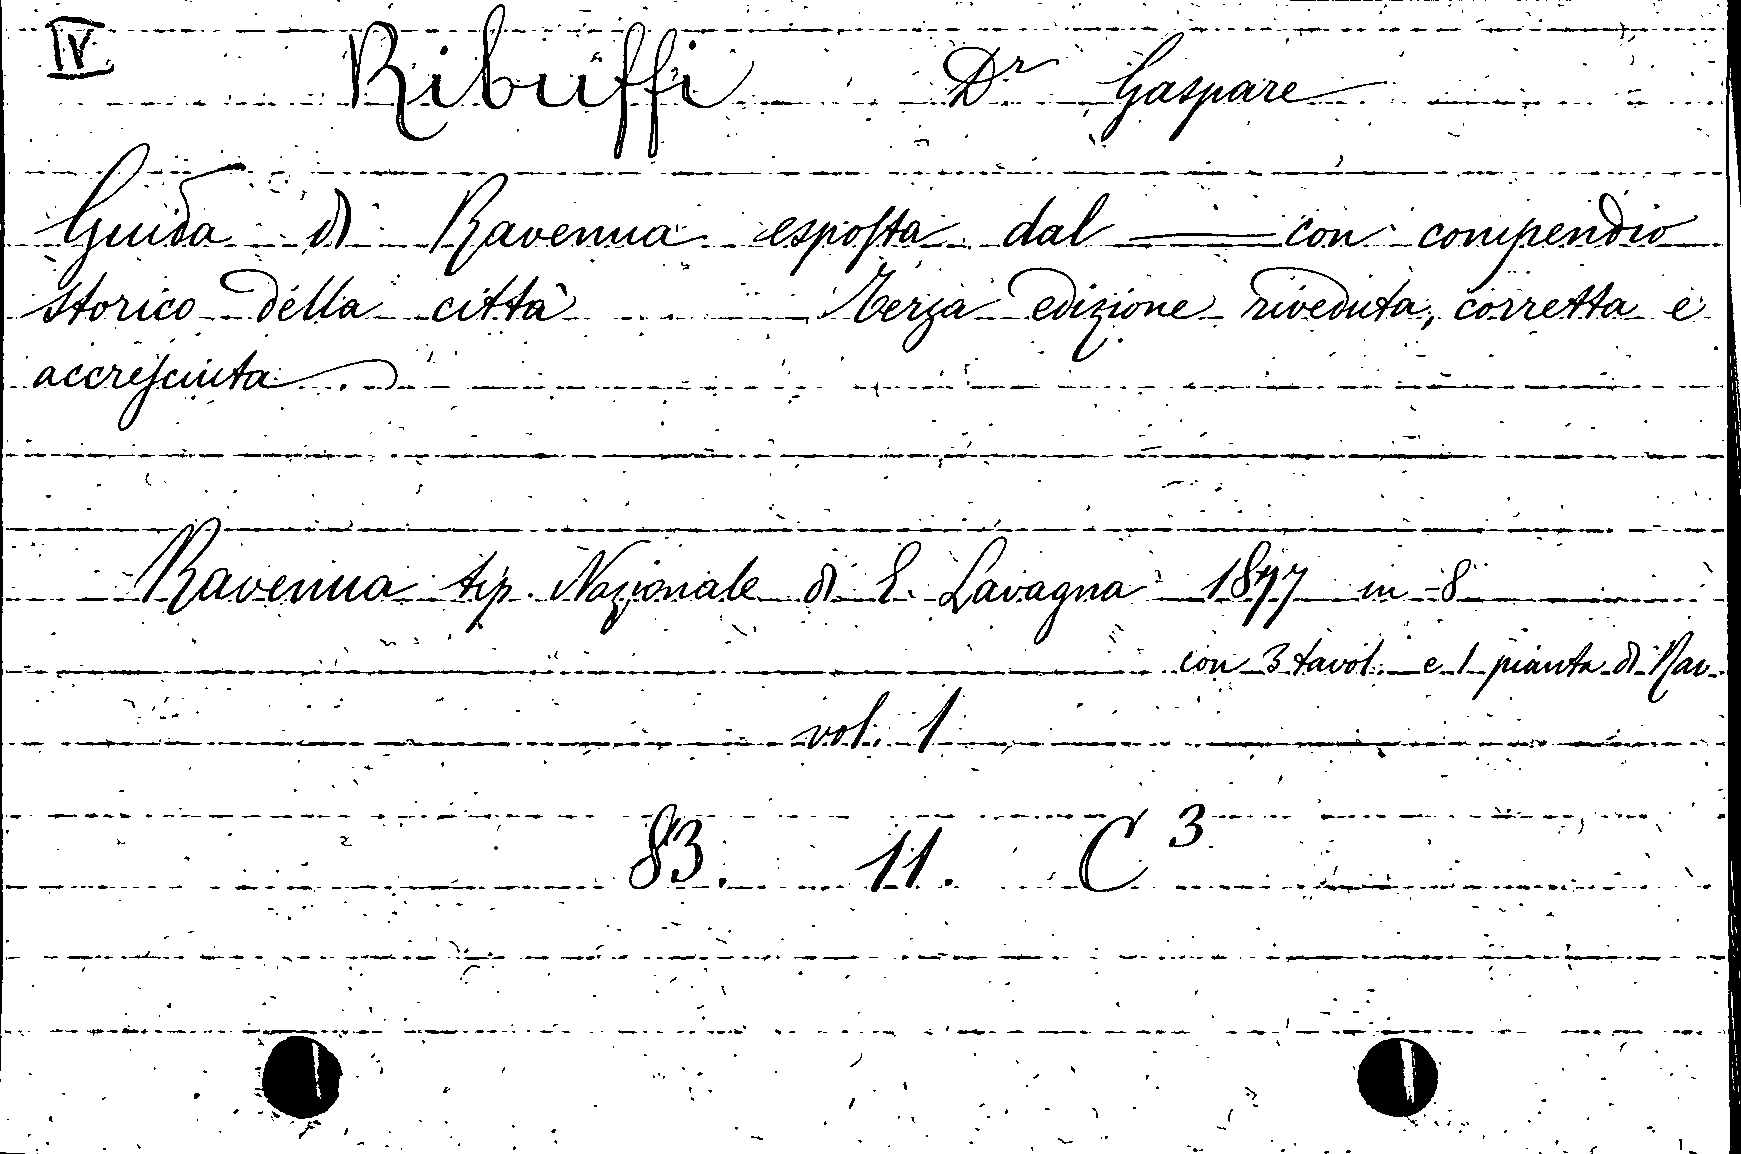 IV Ribuffi Dr Gaspare
Guida di Ravenna esposta dal —— con compendio
storico della città Terza edizione riveduta, corretta e
accresciuta
Ravenna tip. Nazionale di E. Lavagna 1877 in 8
con 3 tavol. e 1 pianta di Rav.
vol. 1
83. 11. C 3